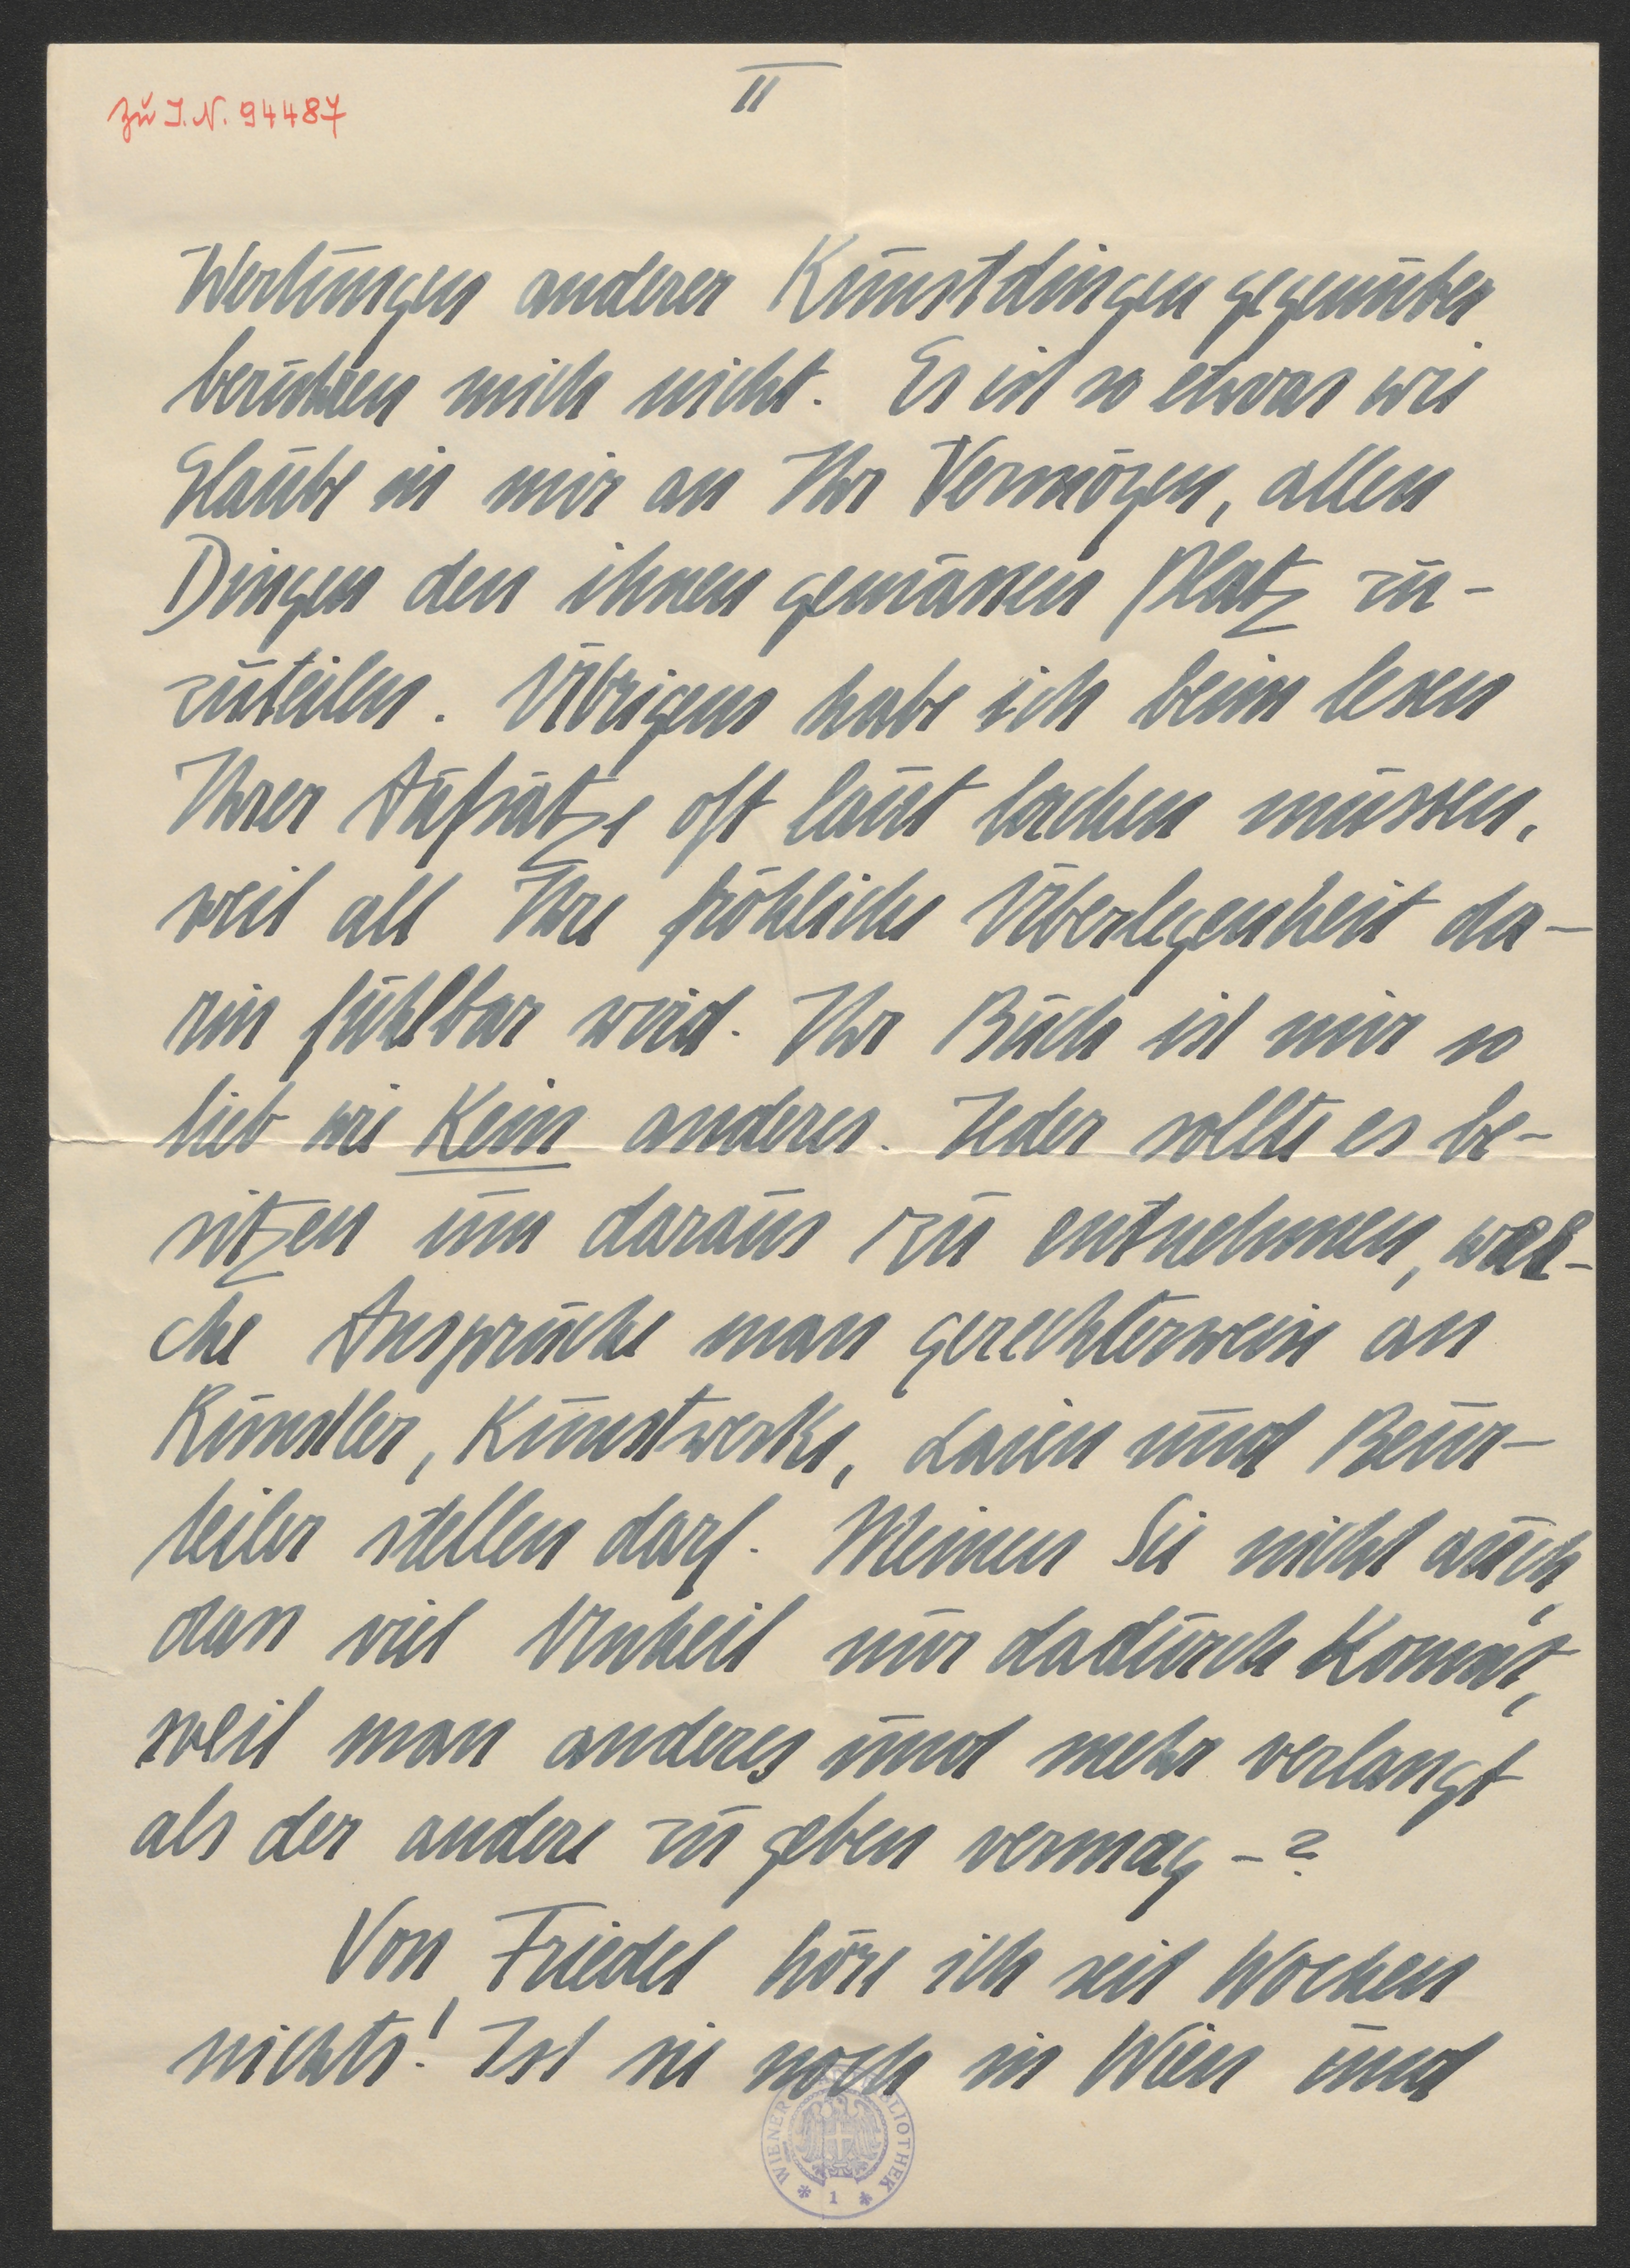 zu J.N. 94487
II
Wertungen anderer Kunstdingen gegenüber
berühren mich nicht. Es ist so etwas wie
Glaube in mir an Ihr Vermögen, allen
Dingen den ihnen gemässen Platz zu-
zuteilen. Übrigens habe ich beim lesen
Ihrer Aufsätze oft laut lachen müssen,
weil all Ihre fröhliche Überlegenheit da-
rin fühlbar wird. Ihr Buch ist mir so
lieb wie Kein anderes. Jeder sollte es be-
sitzen um daraus zu entnehmen, wel-
che Ansprüche man gerechterweise an
Künstler, Kunstwerke, Laien und Beur-
teiler stellen darf. Meinen Sie nicht auch,
dass viel Unheil nur dadurch Kommt,
weil man anderes und mehr verlangt
als der andere zu geben vermag -?
Von Friedel höre ich seit Wochen
nichts! Ist sie noch in Wien und
WIENER STADTBIBLIOTHEK
* 1 *